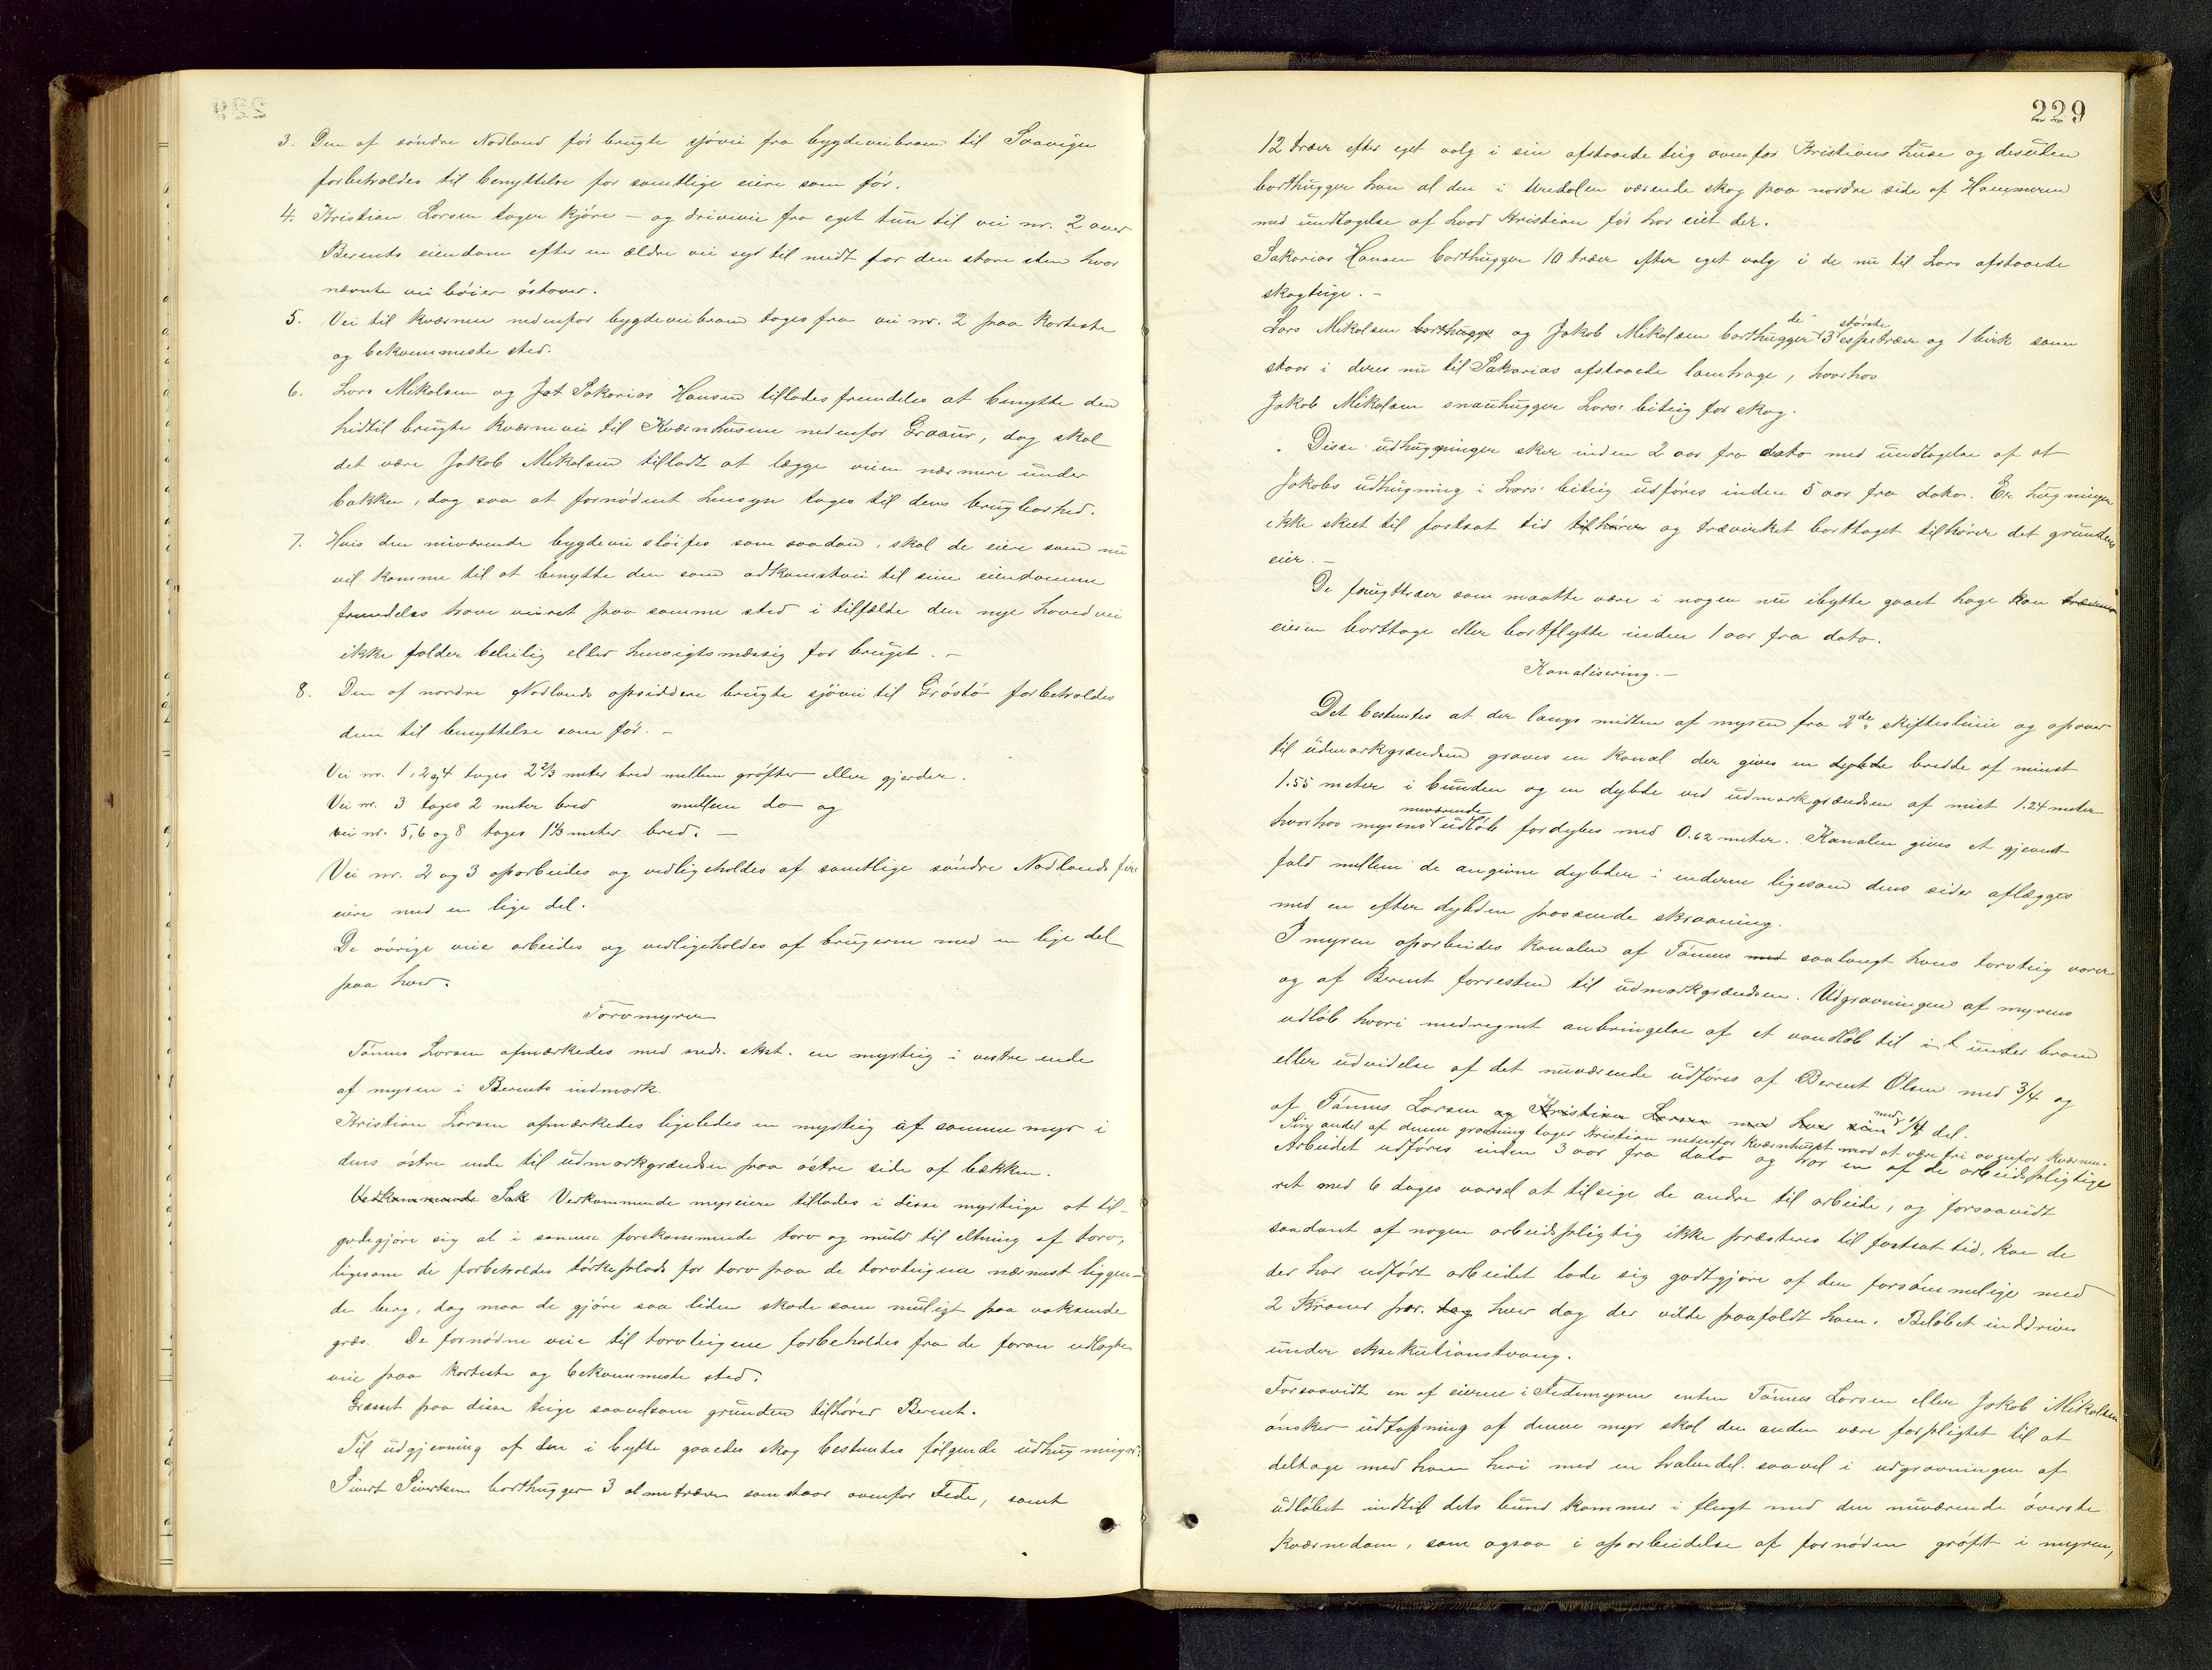 3. Den af søndre Nodland før brugte sjøvei fra bygdeveibroen til Saavigen
forbeholdes til benyttelse for samtlige eiere som før.
4. Kristian Larsen tager kjøre- og drivevei fra eget tun til vei nr. 2 over
Berents eiendom efter en ældre vei syd til midt for den store sten hvor
nævnte vei bøier østover.
5. Vei til kværnen nedenfor bygdeveibroen tages fra vei nr. 2 paa korteste
og bekvemmeste sted.
6. Lars Mikalsen og Jat Sakarias Hansen tillades fremdeles at benytte den
hidtil brugte kværnevei til Kværnhusene nedenfor Graaur, dog skal
det være Jakob Mikalsen tilladt at lægge veien nærmere under
bakken, dog saa at fornødent hensyn tages til dens brugbarhed.
7. Hvis den nuværende bygdevei sløifes som saadan, skal de eiere som nu
vil komme til at benytte den som adkomstvei til sine eiendomme
fremdeles have veiret paa samme sted i tilfælde den nye hovedvei
ikke falder beleilig eller hensigtsmæssig for bruget. -
8. Den af nordre Nodlands opsiddere brugte sjøvei til Grøstø forbeholdes
dem til benyttelse som før. -
Vei nr. 1, 2 og 4 tages 2 2/3 meter bred mellem grøfter eller gjerder.
Vei nr. 3 tages 2 meter bred mellem do og
vei nr. 5, 6 og 8 tages 1 1/3 meter bred. -
Vei nr. 2 og 3 oparbeides og vedligeholdes af samtlige søndre Nodlands fire
eiere med en lige del.
De øvrige veie arbeides og vedligeholdes af brugerne med en lige del
paa hver.
Torvmyren
Tønnes Larsen afmærkedes med neds. skst. en myrteig i vestre ende
af myren i Berents indmark.
Kristian Larsen afmærkedes ligeledes en myrteig af samme myr i
dens østre ende til udmarkgrændsen paa østre side af bækken.
Vedkommende Sak Vedkommende myreiere tillades i disse myrteige at til-
godegjøre sig al i samme forekommende torv og muld til eltning af torv,
ligesom de forbeholdes tørkeplads for torv paa de torvteigene nærmest liggen-
de berg, dog maa de gjøre saa liden skade som muligt paa voksende
græs. De fornødne veie til torvteigene forbeholdes fra de foran udlagte
veie paa korteste og bekvemmeste sted.
Græsset paa disse teige saavelsom grunden tilhører Berent.
Til udgjevning af den i bytte gaaedes skog bestemtes følgende udhugninger:
Sivert Sivertsen borthugger 3 almetræer som staar ovenfor Fede, samt
229
12 træer efter eget valg i sin afstaaede teig ovenfor Kristians huse og desuden
borthugger han al den i Uredalen værende skog paa nordre side af Hammeren
med undtagelse af hvad Kristian før har eiet der.
Sakarias Hansen borthugger 10 træer efter eget valg i de nu til Lars afstaaede
skogteige. -
Lars Mikalsen borthugge og Jakob Mikalsen borthugger de 3 største espetræer og 1 birk som
staar i deres nu til Sakarias afstaaede lamhage, hvorhos
Jakob Mikalsen snauhugger Lars' biteig for skog.
Disse udhugninger sker inden 2 aar fra dato med undtagelse af at
Jakobs udhugning i Lars' biteig udføres inden 5 aar fra dato. Er hugningen
ikke skeet til fastsat tid tilhører og trævirket borttaget tilhører det grundens
eier. -
De frugttræer som maatte være i nogen nu ibytte gaaet hage kan
eieren borttage eller bortflytte inden 1 aar fra dato.
Kanalisering. -
Det bestemtes at der langs midten af myren fra 2de skifteslinie og opover
til udmarkgrændsen graves en kanal der gives en dybde bredde af minst
1.55 meter i bunden og en dybde ved udmarkgrændsen af mist 1.24 meter
hvorhos myrens nuværende udløb fordybes med 0.62 meter. Kanalen gives et gjevnt
fald mellem de angivne dybder i enderne ligesom dens sider aflægges
med en efter dybden passende skraaning.
I myren oparbeides kanalen af Tønnes med saalangt hans torvteig varer
og af Berent forresten til udmarkgrændsen. Udgravningen af myrens
udløb hvori medregnet anbringelse af et vandløb til i under broen
eller udvidelse af det nuværende udføres af Berent Olsen med 3/4 og
af Tønnes Larsen og Kristian Larsen med hver sin med 1/4 del.
Sin andel af denne gravning tager Kristian nedenfor kværnhuset mod at være fri ovenfor kværnen.
Arbeidet udføres inden 3 aar fra dato og har en af de arbeidspligtige
ret med 6 dages varsel at tilsige de andre til arbeide, og forsaavidt
saadant af nogen arbeidspligtig ikke præsteres til fastsat tid, kan de
der har udført arbeidet lade sig godtgjøre af den forsømmelige med
2 Kroner pær. dag hver dag der vilde paafaldt ham. Beløbet inddrives
under eksekutionstvang.
Forsaavidt en af eierne i Fedemyren enten Tønnes Larsen eller Jakob Mikalsen
ønsker udtapning af denne myr skal den anden være forpligtet til at
deltage med ham heri med en halvdel saavel i udgravningen af
udløbet indtil dets bund kommer i flugt med den nuværende øverste
kværnedam, som ogsaa i oparbeidelse af fornøden grøft i myren,